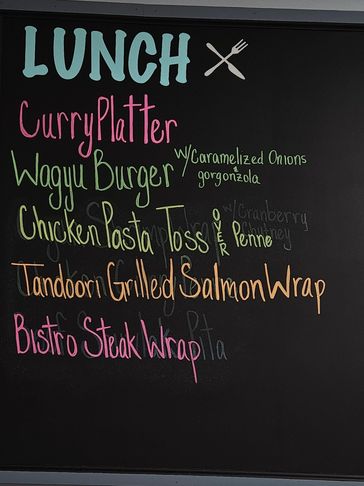 LUNCH
Curry Platter
Wagyu Burger w/Caramelized Onions
& gorgonzola
Chicken Pasta Toss OVER Penne
w/Cranberry
Chutney
Tandoori Grilled Salmon Wrap
Bistro Steak Wrap
Pita